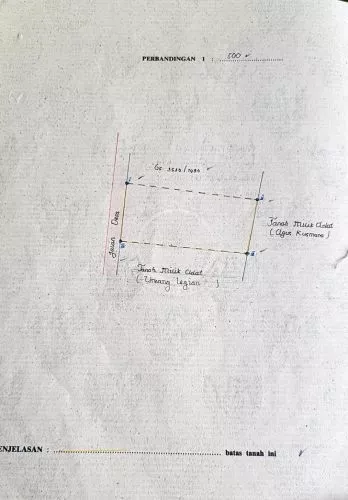 PERBANDINGAN 1 : 500
Jalan Desa
Tanah Milik Adat
(Agus Kusmana)
Tanah Milik Adat
( Untang Legian )
ENJELASAN : batas tanah ini